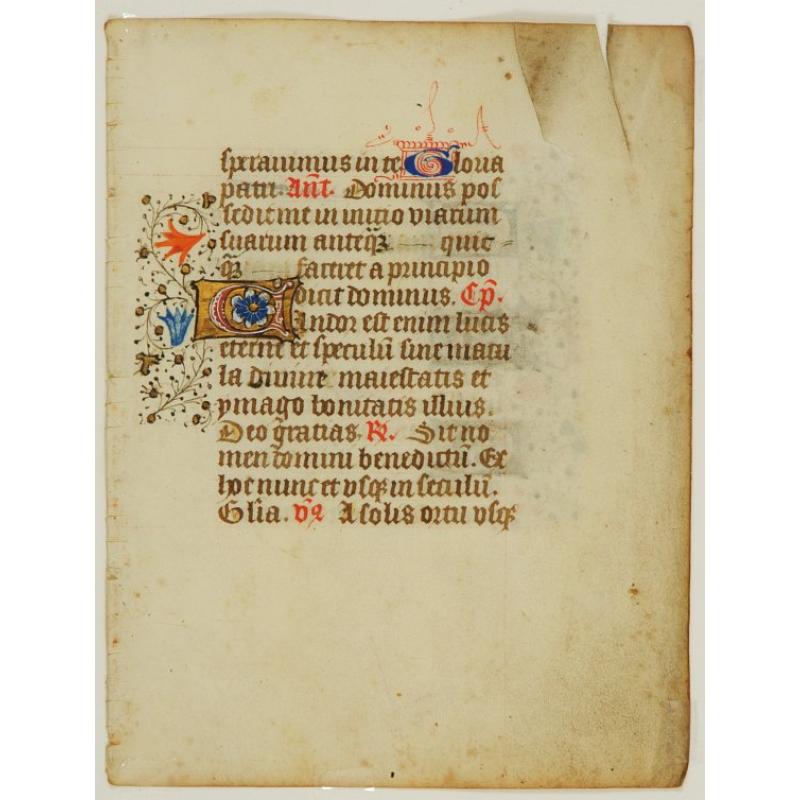 sperauimus in te. Gloria
patri. Añt. Dominus pos
sedit me in inicio viarum
suarum anteq̃ quic=
q̃ faceret a principio
dicit dominus. Cp̃.
Candor est enim lucis
eterne et speculũ sine macu
la diuine maiestatis et
ymago bonitatis illius.
Deo gratias. R̃. Sit no
men domini benedictũ. Ex
hoc nunc et vsq̃ in seculũ.
Glia. v̾ A solis ortu vsq̃